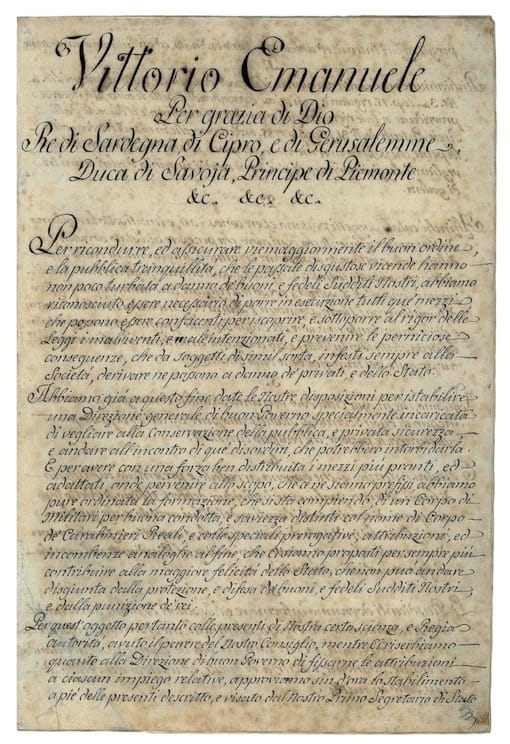 Vittorio Emanuele
Per grazia di Dio
Re di Sardegna di Cipro, e di Gerusalemme,
Duca di Savoja, Principe di Piemonte
&c. &c. &c.
Per ricondurre, ed assicurare viemaggiormente il buon ordine,
e la pubblica tranquillità, che le passate disgustose vicende hanno
non poco turbata a danno de' buoni, e fedeli Sudditi Nostri, abbiamo
riconosciuto essere necessario di porre in esecuzione tutti que' mezzi,
che possono essere confacenti per iscoprire, e sottoporre al rigor delle
Leggi i malviventi, e male intenzionati, e prevenire le perniciose
conseguenze, che da soggetti di simil sorta, infesti sempre alla
Società, derivare ne possono a danno de' privati, e dello Stato.
Abbiamo già a questo fine date le Nostre disposizioni per istabilire
una Direzione generale di buon Governo specialmente incaricata
di vegliare alla Conservazione della pubblica, e privata sicurezza
e andare all'incontro di que' disordini, che potrebbero intorbidarla.
E per avere con una forza ben distribuita i mezzi più pronti, ed
adattati, onde pervenire allo scopo, che ce ne siamo prefissi, abbiamo
pure ordinata la formazione, che si sta compiendo, di un Corpo di
Militari per buona condotta, e saviezza distinti, col nome di Corpo
de' Carabinieri Reali, e colle speciali prerogative, attribuzioni, ed
incombenze analoghe al fine, che Ci siamo proposti per sempre più
contribuire alla maggiore felicità dello Stato, che non può andare
disgiunta dalla protezione, e difesa de' buoni, e fedeli Sudditi Nostri,
e dalla punizione de' rei.
Per quest'oggetto pertanto colle presenti di Nostra certa scienza, e Regia
autorità, avuto il parere del Nostro Consiglio, mentre Ci riserbiamo
quanto alla Direzione di buon Governo di fissarne le attribuzioni
a ciascun impiego relative, approviamo sin d'ora lo stabilimento
a piè delle presenti descritto, e visato dal Nostro Primo Segretario di Stato